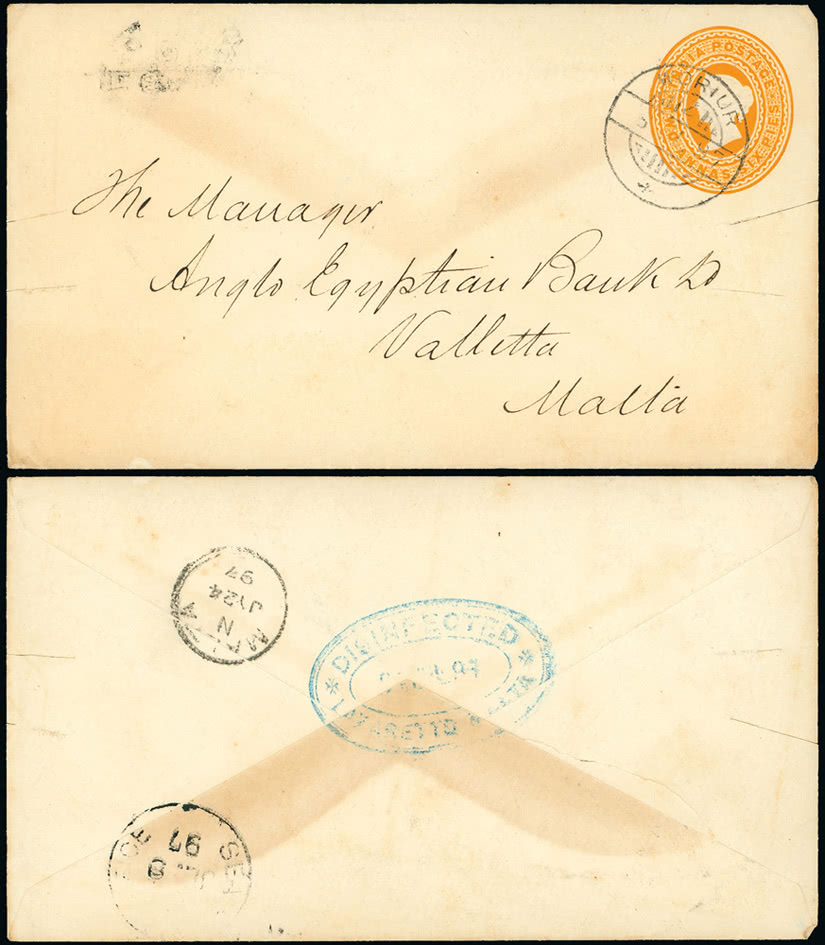 INDIA POSTAGE
TWO ANNAS SIX PIES
The Manager
Anglo Egyptian Bank Ld
Valletta
Malta
MALTA
N
JY24
97
DISINFECTED
LAZARETTO MALTA
SEA
97